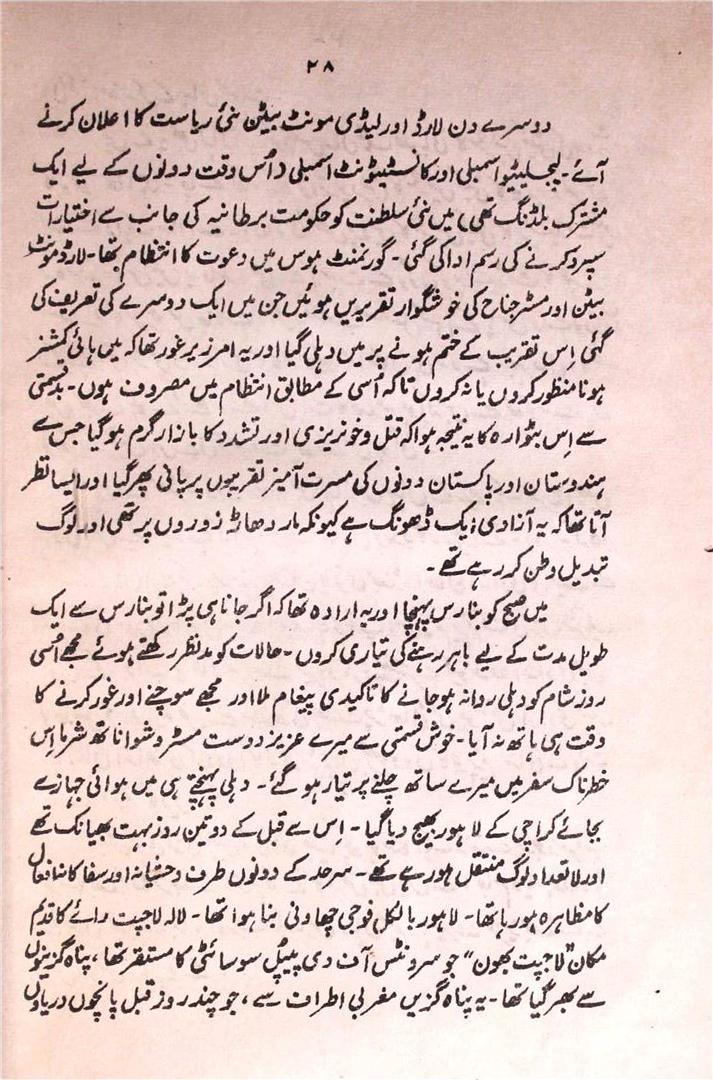 ۲۸
دوسرے دن لارڈ اور لیڈی مونٹ بیٹن نئی ریاست کا اعلان کرنے
آئے۔ لیجسلیٹیو اسمبلی اور کانسٹیٹونٹ اسمبلی (اُس وقت دونوں کے لیے ایک
مشترک بلڈنگ تھی) میں نئی سلطنت کو حکومت برطانیہ کی جانب سے اختیارات
سپرد کرنے کی رسم ادا کی گئی۔ گورنمنٹ ہوس میں دعوت کا انتظام تھا۔ لارڈ مونٹ
بیٹن اور مسٹر جناح کی خوشگوار تقریریں ہوئیں جن میں ایک دوسرے کی تعریف کی
گئی اِس تقریب کے ختم ہونے پر میں دہلی گیا اور یہ امر زیر غور تھا کہ میں ہائی کمشنر
ہونا منظور کروں یا نہ کروں تاکہ اُسی کے مطابق انتظام میں مصروف ہوں۔ بدقسمتی
سے اِس بٹوارہ کا یہ نتیجہ ہوا کہ قتل و خونریزی اور تشدد کا بازار گرم ہوگیا جس سے
ہندوستان اور پاکستان دونوں کی مسرت آمیز تقریبوں پر پانی پھر گیا اور ایسا نظر
آتا تھا کہ یہ آزادی ایک ڈھونگ ہے کیونکہ مار دھاڑ زوروں پر تھی اور لوگ
تبدیل وطن کر رہے تھے۔
میں صبح کو بنارس پہنچا اور یہ ارادہ تھا کہ اگر جانا ہی پڑا تو بنارس سے ایک
طویل مدت کے لیے باہر رہنے کی تیاری کروں۔ حالات کو مدنظر رکھتے ہوئے مجھے اُسی
روز شام کو دہلی روانہ ہو جانے کا تاکیدی پیغام ملا اور مجھے سوچنے اور غور کرنے کا
وقت ہی ہاتھ نہ آیا۔ خوش قسمتی سے میرے عزیز دوست مسٹر وشوا ناتھ شرما اِس
خطرناک سفر میں میرے ساتھ چلنے پر تیار ہو گئے۔ دہلی پہنچتے ہی میں ہوائی جہاز سے
بجائے کراچی کے لاہور بھیج دیا گیا۔ اِس سے قبل کے دو تین روز بہت بھیانک تھے
اور لاتعداد لوگ منتقل ہو رہے تھے۔ سرحد کے دونوں طرف وحشیانہ اور سفاکانہ افعال
کا مظاہرہ ہو رہا تھا۔ لاہور بالکل فوجی چھاونی بنا ہوا تھا۔ لالہ لاجپت رائے کا قدیم
مکان ”لاجپت بھون“ جو سرونٹس آف دی پیپُل سوسائٹی کا مستقر تھا، پناہ گزینوں
سے بھر گیا تھا۔ یہ پناہ گزیں مغربی اطراف سے، جو چند روز قبل پانچوں دریاؤں